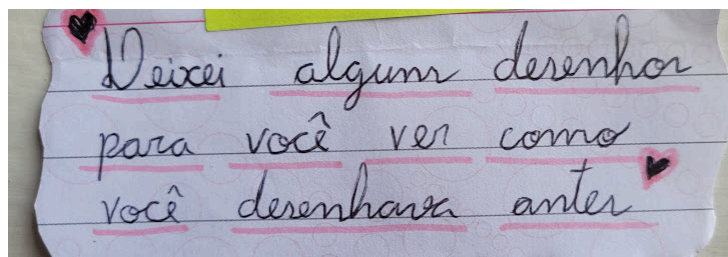 Deixei alguns desenhos
para você ver como
você desenhava antes